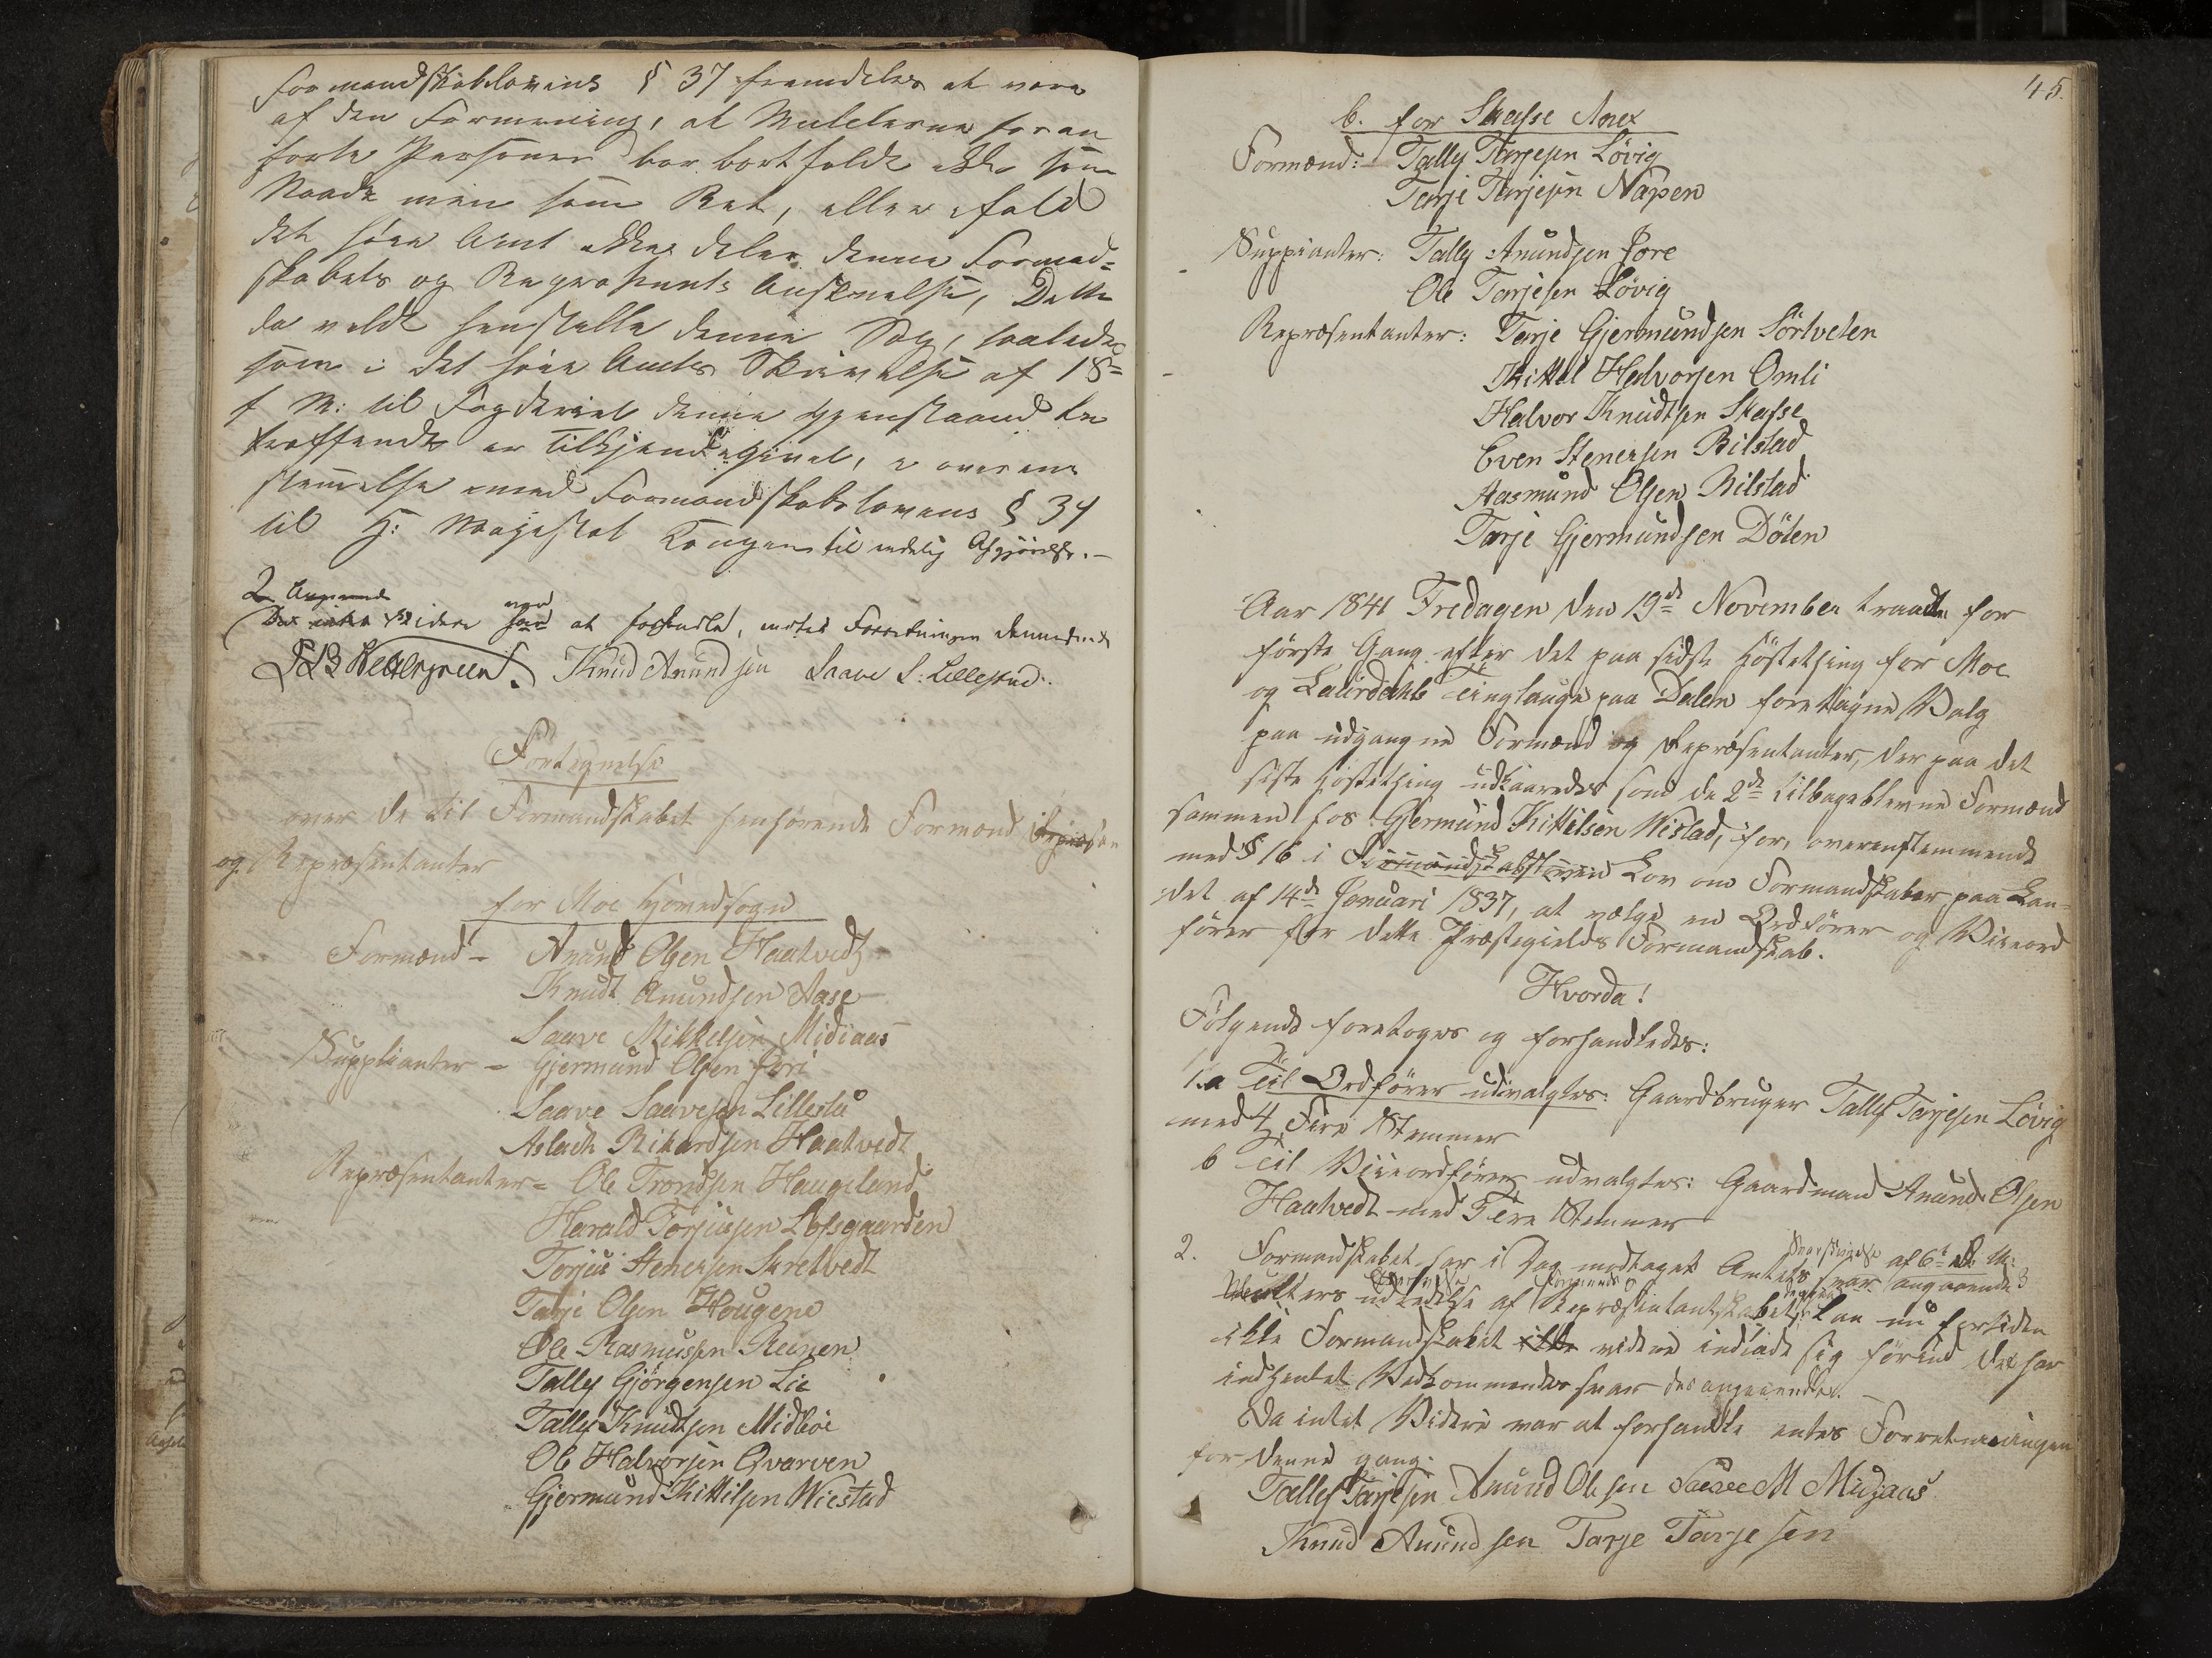 Formandskabslovens § 37 fremdeles at være
af den Formening, at Mulcterne for an
førte Personer bør bortfalde ikke som
Naade men som Ret, eller ifald
det høie Amt ikke deler denne Formand=
skabets og Repræsentants Anskuelse, Dette
da vilde henstille denne Sag, saaledes
som i det høie Amts Skrivelse af 18=
f M: til Fogderiet denne Gjenstand be
træffende er tilkjendegivet, i overens
stemmelse med Formandskabslovens § 34
til H: Majestæt Kongen til endelig Afgjørelse.–
2 Angaaende
Da intet Videre var at forhandle, endtes Forretningen dermed
Knud Anundsen Saave S: Lillestud.
Fortegnelse
over de til Formandskabet henhørende Formænd
og Repræsentanter
for Moe Hovedsogn
Formænd – Anund Olsen Haatvedt
Knudt Anundsen Aase
Saave Mikkelsen Midiaas
Supplianter – Gjermund Olsen Fori
Saave Saavesen Lillestu
Aslach Rikardsen Haatvedt
Repræsentanter = Ole Trondsen Haugelund
Harald Torjusen Lofsgaarden
Torjus Stenersen Skretvedt
Tarje Olsen Hougene
Ole Rasmusen Reenen
Tallef Gjörgensen Lie
Tallef Knudtsen Midbøe
Ole Halvorsen Qvarven
Gjermund Kittilsen Wiestad
45.
b. for Skafse Anex
Formænd: – Tallef Tarjesen Løvig
Tarje Tarjesen Næsen
Suppianter: Tallef Anundsen Fore
Ole Tarjesen Løvig
Repræsentanter: Tarje Gjermundsen Sörtveten
Kittel Halvorsen Omli
Halvor Knudtsen Skafse
Even Stenersen Bilstad
Aasmund Olsen Bilstad
Tarje Gjermundsen Döten
Aar 1841 Fredagen den 19de November traadte for
förste Gang efter det paa sidste Höstething for Moe
og Laurdahls Tinglauge paa Dalen foretagne Valg
paa udgangne Formænd og Repræsentanter, der paa det
siste Höstething udkaaredes som de 2de tilbageblevne Formænd
sammen hos Gjermund Kittilsen Wistad, for, overenstemmende
med § 16 i Formandskabsloven Lov om Formandskaber paa Lan=
det af 14de Januari 1837, at vælge en Ordförer og Viceord
förer for dette Præstegields Formandskab.
Hvorda!
Fölgende foretoges og forhandledes:
1.a Til Ordförer udvalgtes: Gaardbruger Tallef Tarjesen Lövig
med 4 Fire Stemmer
b Til Viceordförer udvalgtes: Gaardmand Anund Olsen
Haatvedt med Fire Stemmer
2. Formandskabet har i Dag modtaget Amtets svar af 6te d. M: angaaende
Mulcters udredelse af Repræsentantskabet, kan nu fortiden
ikke Formandskabet ikke videre indlade sig förend det har
indhentet Vedkommendes svar des angaaende.
Da intet Videre var at forhandle entes Forretningen
for denne gang.
Tallef Tarjesen Anund Olsen Saave M Midjaas
Knud Anundsen Tarje Tarjesen